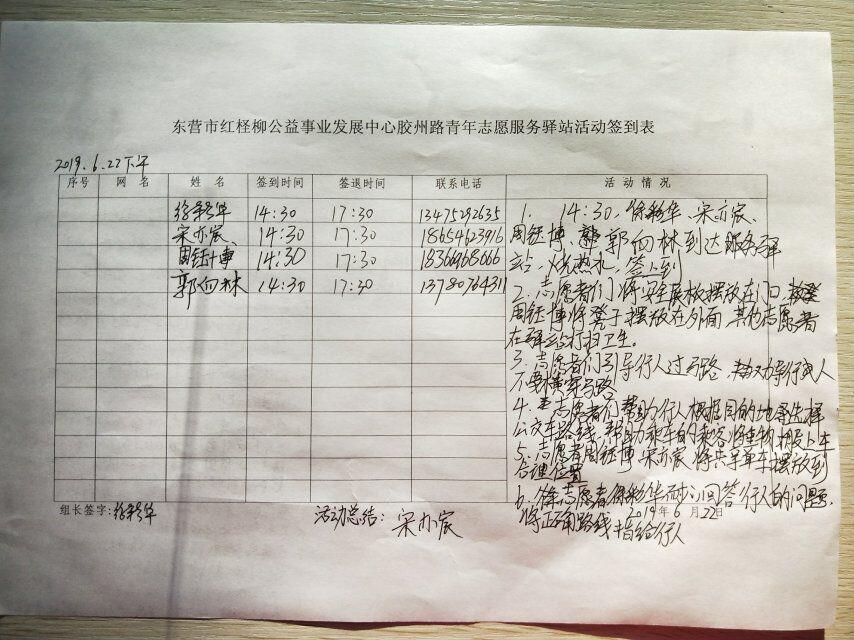 东营市红柽柳公益事业发展中心胶州路青年志愿服务驿站活动签到表
2019.6.22下午
序号 网名 姓名 签到时间 签退时间 联系电话 活动情况
徐彩华 14:30 17:30 13475292635
宋亦宸、 14:30 17:30 18654623916
周钰博 14:30 17:30 18366968666
郭向林 14:30 17:30 13780764311
1. 14:30. 徐彩华、宋亦宸、
周钰博、郭向林到达服务驿
站、烧热水,签到
2. 志愿者们将安全展板摆放在门口,
周钰博将凳子摆放在外面,其他志愿者
在驿站打扫卫生。
3. 志愿者们引导行人过马路,劝导行人
不要横穿马路
4. 志愿者们帮助行人根据目的地寻选择
公交车路线,帮助乘车的乘客将重物搬上车
5. 志愿者周钰博、宋亦宸将共享单车摆放到
合理位置
6. 志愿者徐彩华耐心回答行人的问题,
将正确路线指给行人
2019年6月22日
组长签字:徐彩华
活动总结:宋亦宸